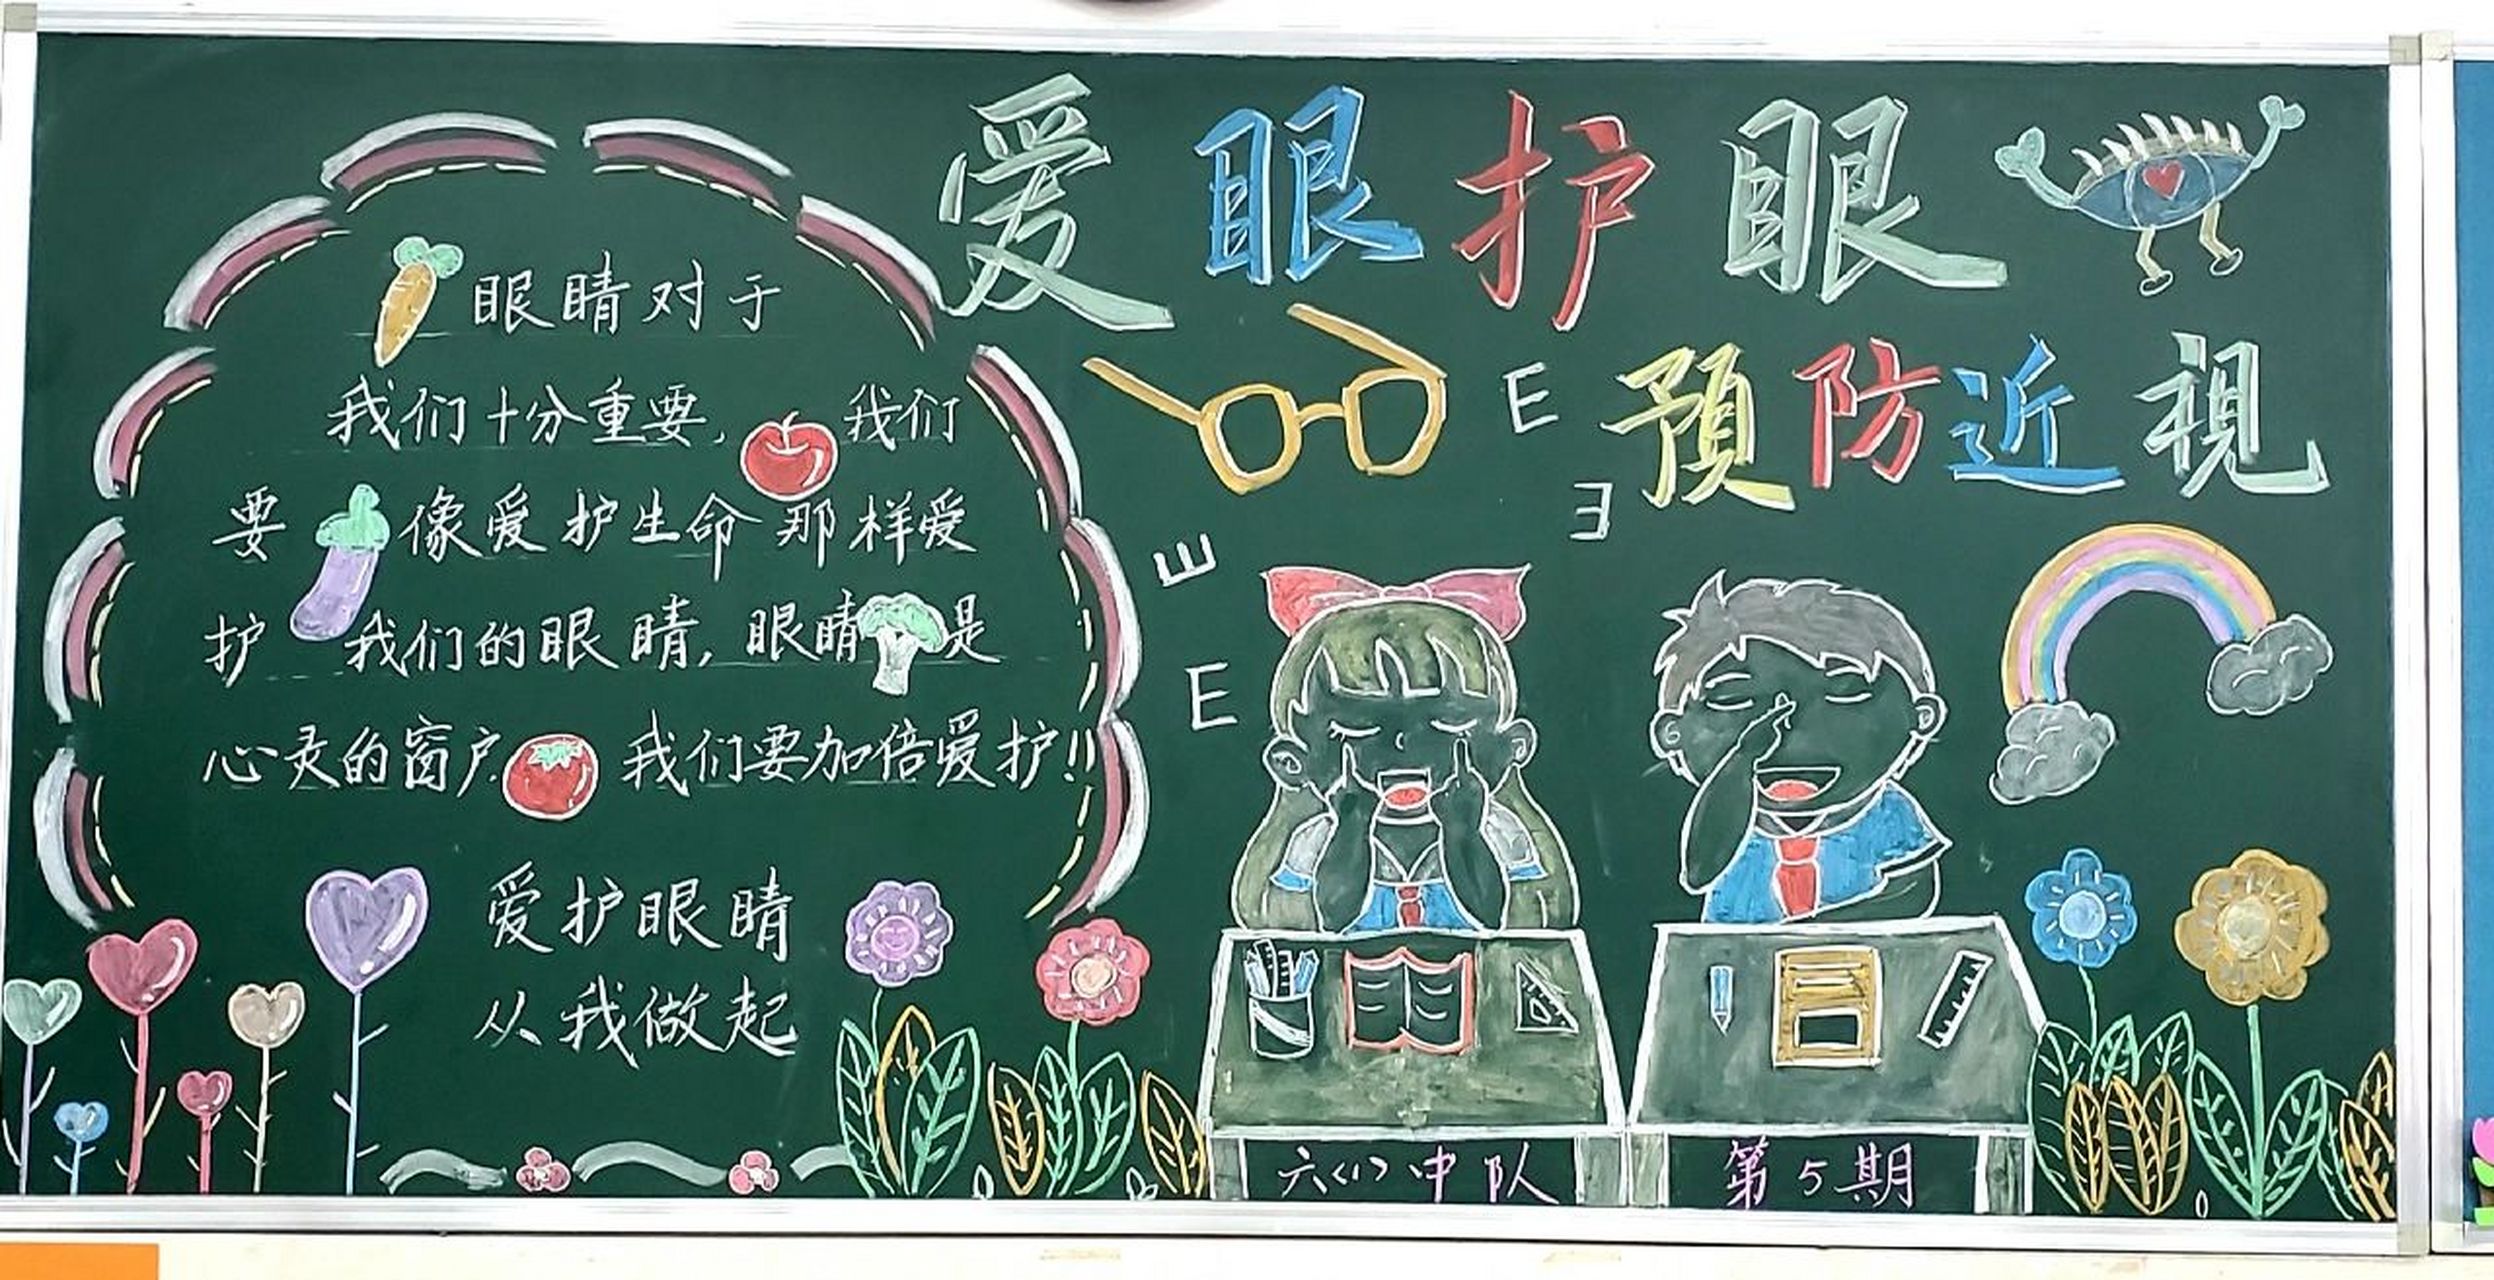 爱眼护眼
预防近视
眼睛对于
我们十分重要,我们
要像爱护生命那样爱
护我们的眼睛,眼睛是
心灵的窗户.我们要加倍爱护!!
爱护眼睛
从我做起
E
E
E
E
六<1>中队
第5期